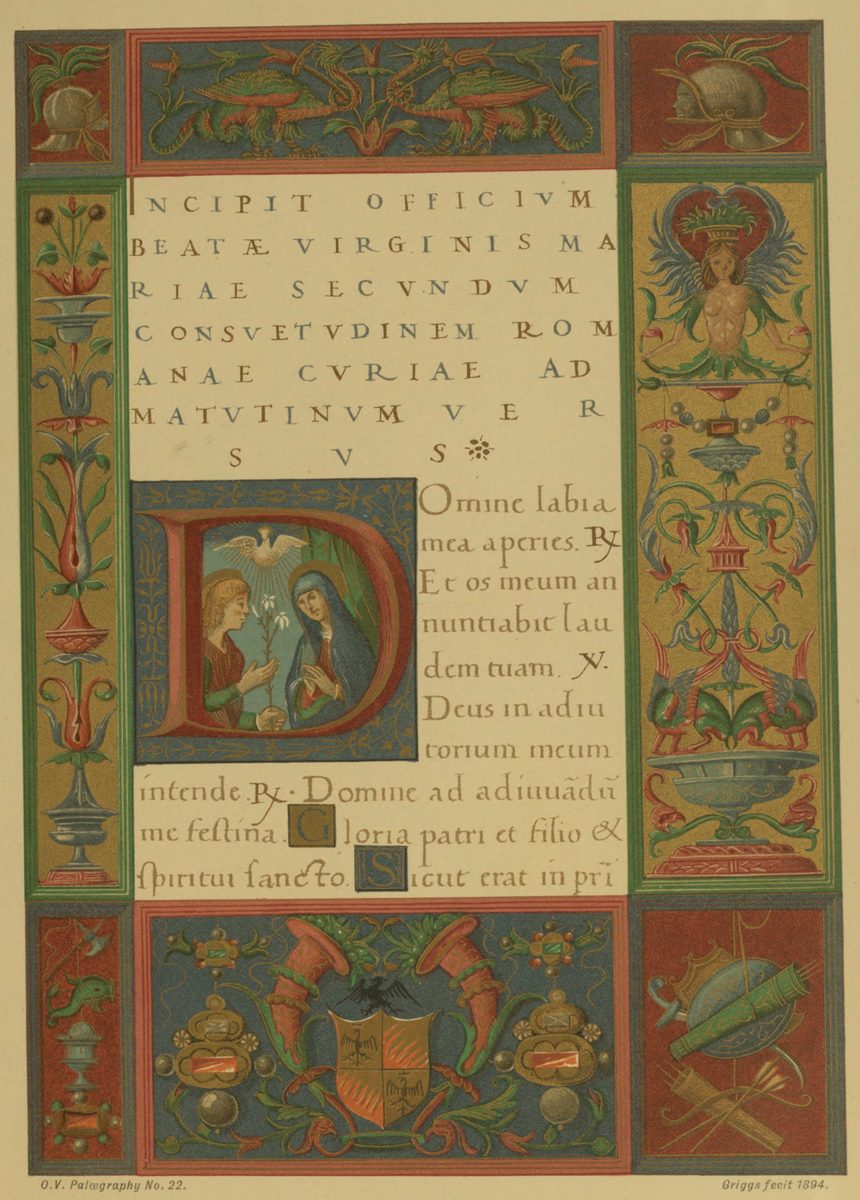 INCIPIT OFFICIVM
BEATÆ VIRGINIS MA
RIAE SECVNDVM
CONSVETVDINEM ROM
ANAE CVRIAE AD
MATVTINVM VER
SVS
DOmine labia
mea aperies. ℟
Et os meum an
nuntiabit lau
dem tuam. ℣.
Deus in adiu
torium meum
intende. ℟. Domine ad adiuuādū
me festina. Gloria patri et filio &
spiritui sancto. Sicut erat in pri̅
O.V. Palæography No. 22.
Griggs fecit 1894.